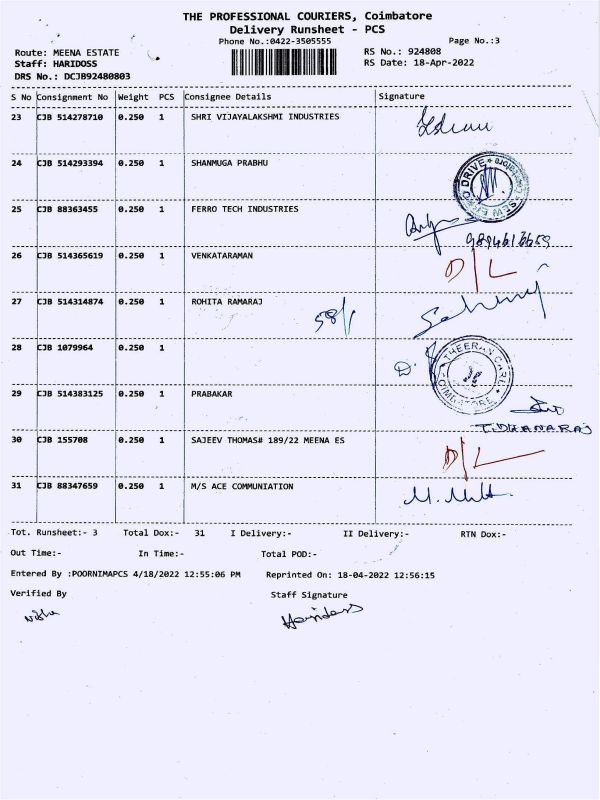 THE PROFESSIONAL COURIERS, Coimbatore
Delivery Runsheet - PCS
Phone No.:0422-3505555
Page No.:3
Route: MEENA ESTATE
RS No.: 924808
Staff: HARIDOSS
RS Date: 18-Apr-2022
DRS No.: DCJB92480803
S No Consignment No Weight PCS Consignee Details Signature
23 CJB 514278710 0.250 1 SHRI VIJAYALAKSHMI INDUSTRIES
24 CJB 514293394 0.250 1 SHANMUGA PRABHU
25 CJB 88363455 0.250 1 FERRO TECH INDUSTRIES
26 CJB 514365619 0.250 1 VENKATARAMAN D/L
27 CJB 514314874 0.250 1 ROHITA RAMARAJ 58/1
28 CJB 1079964 0.250 1
THEERAN CARE
COIMBATORE
29 CJB 514383125 0.250 1 PRABAKAR
T.DHANARAJ
30 CJB 155708 0.250 1 SAJEEV THOMAS# 189/22 MEENA ES D/L
31 CJB 88347659 0.250 1 M/S ACE COMMUNIATION
Tot. Runsheet:- 3 Total Dox:- 31 I Delivery:- II Delivery:- RTN Dox:-
Out Time:- In Time:- Total POD:-
Entered By :POORNIMAPCS 4/18/2022 12:55:06 PM Reprinted On: 18-04-2022 12:56:15
Verified By Staff Signature
Haridoss